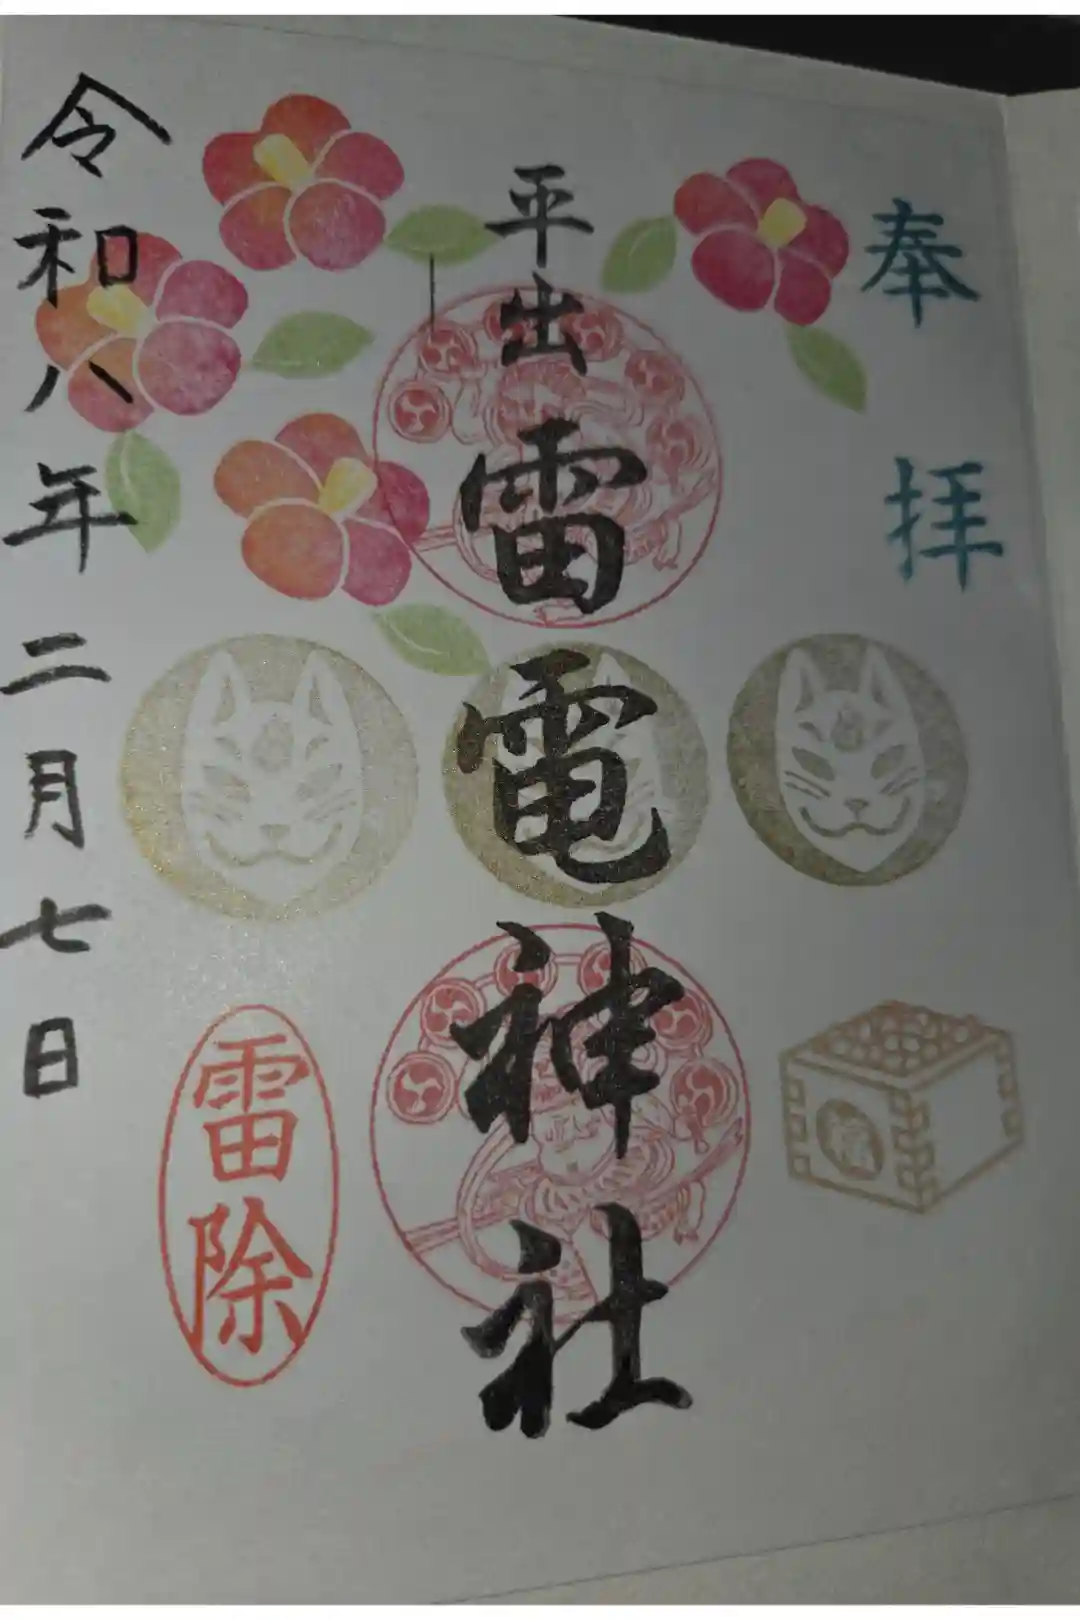 奉拝
平出雷電神社
令和八年二月七日
雷除